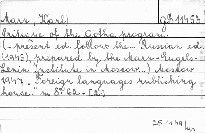 Marx, Karl
Critique of the Gotha program.
(-present ed. follow the... Russian ed.
(1945), prepared by the Marx-Engels-
Lenin Institute in Moscow..) Moscow
1947. Foreign languages publishing
house. in 8°